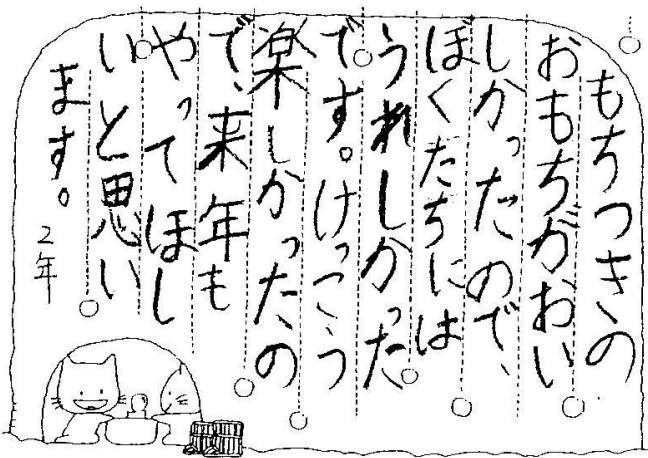 もちつきの
おもちがおい
しかったので、
ぼくたちには
うれしかった
です。けっこう
楽しかったの
で、来年も
やってほし
いと思い
ます。
2年